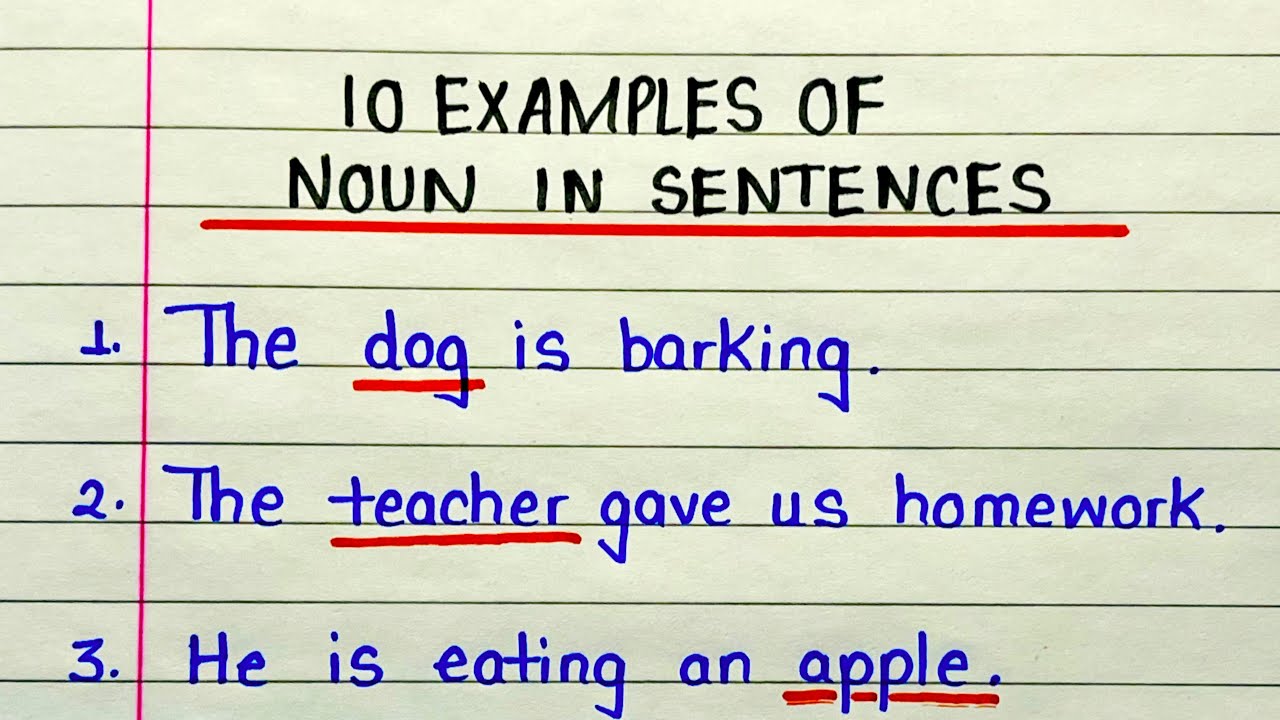 10 EXAMPLES OF
NOUN IN SENTENCES
1. The dog is barking.
2. The teacher gave us homework.
3. He is eating an apple.